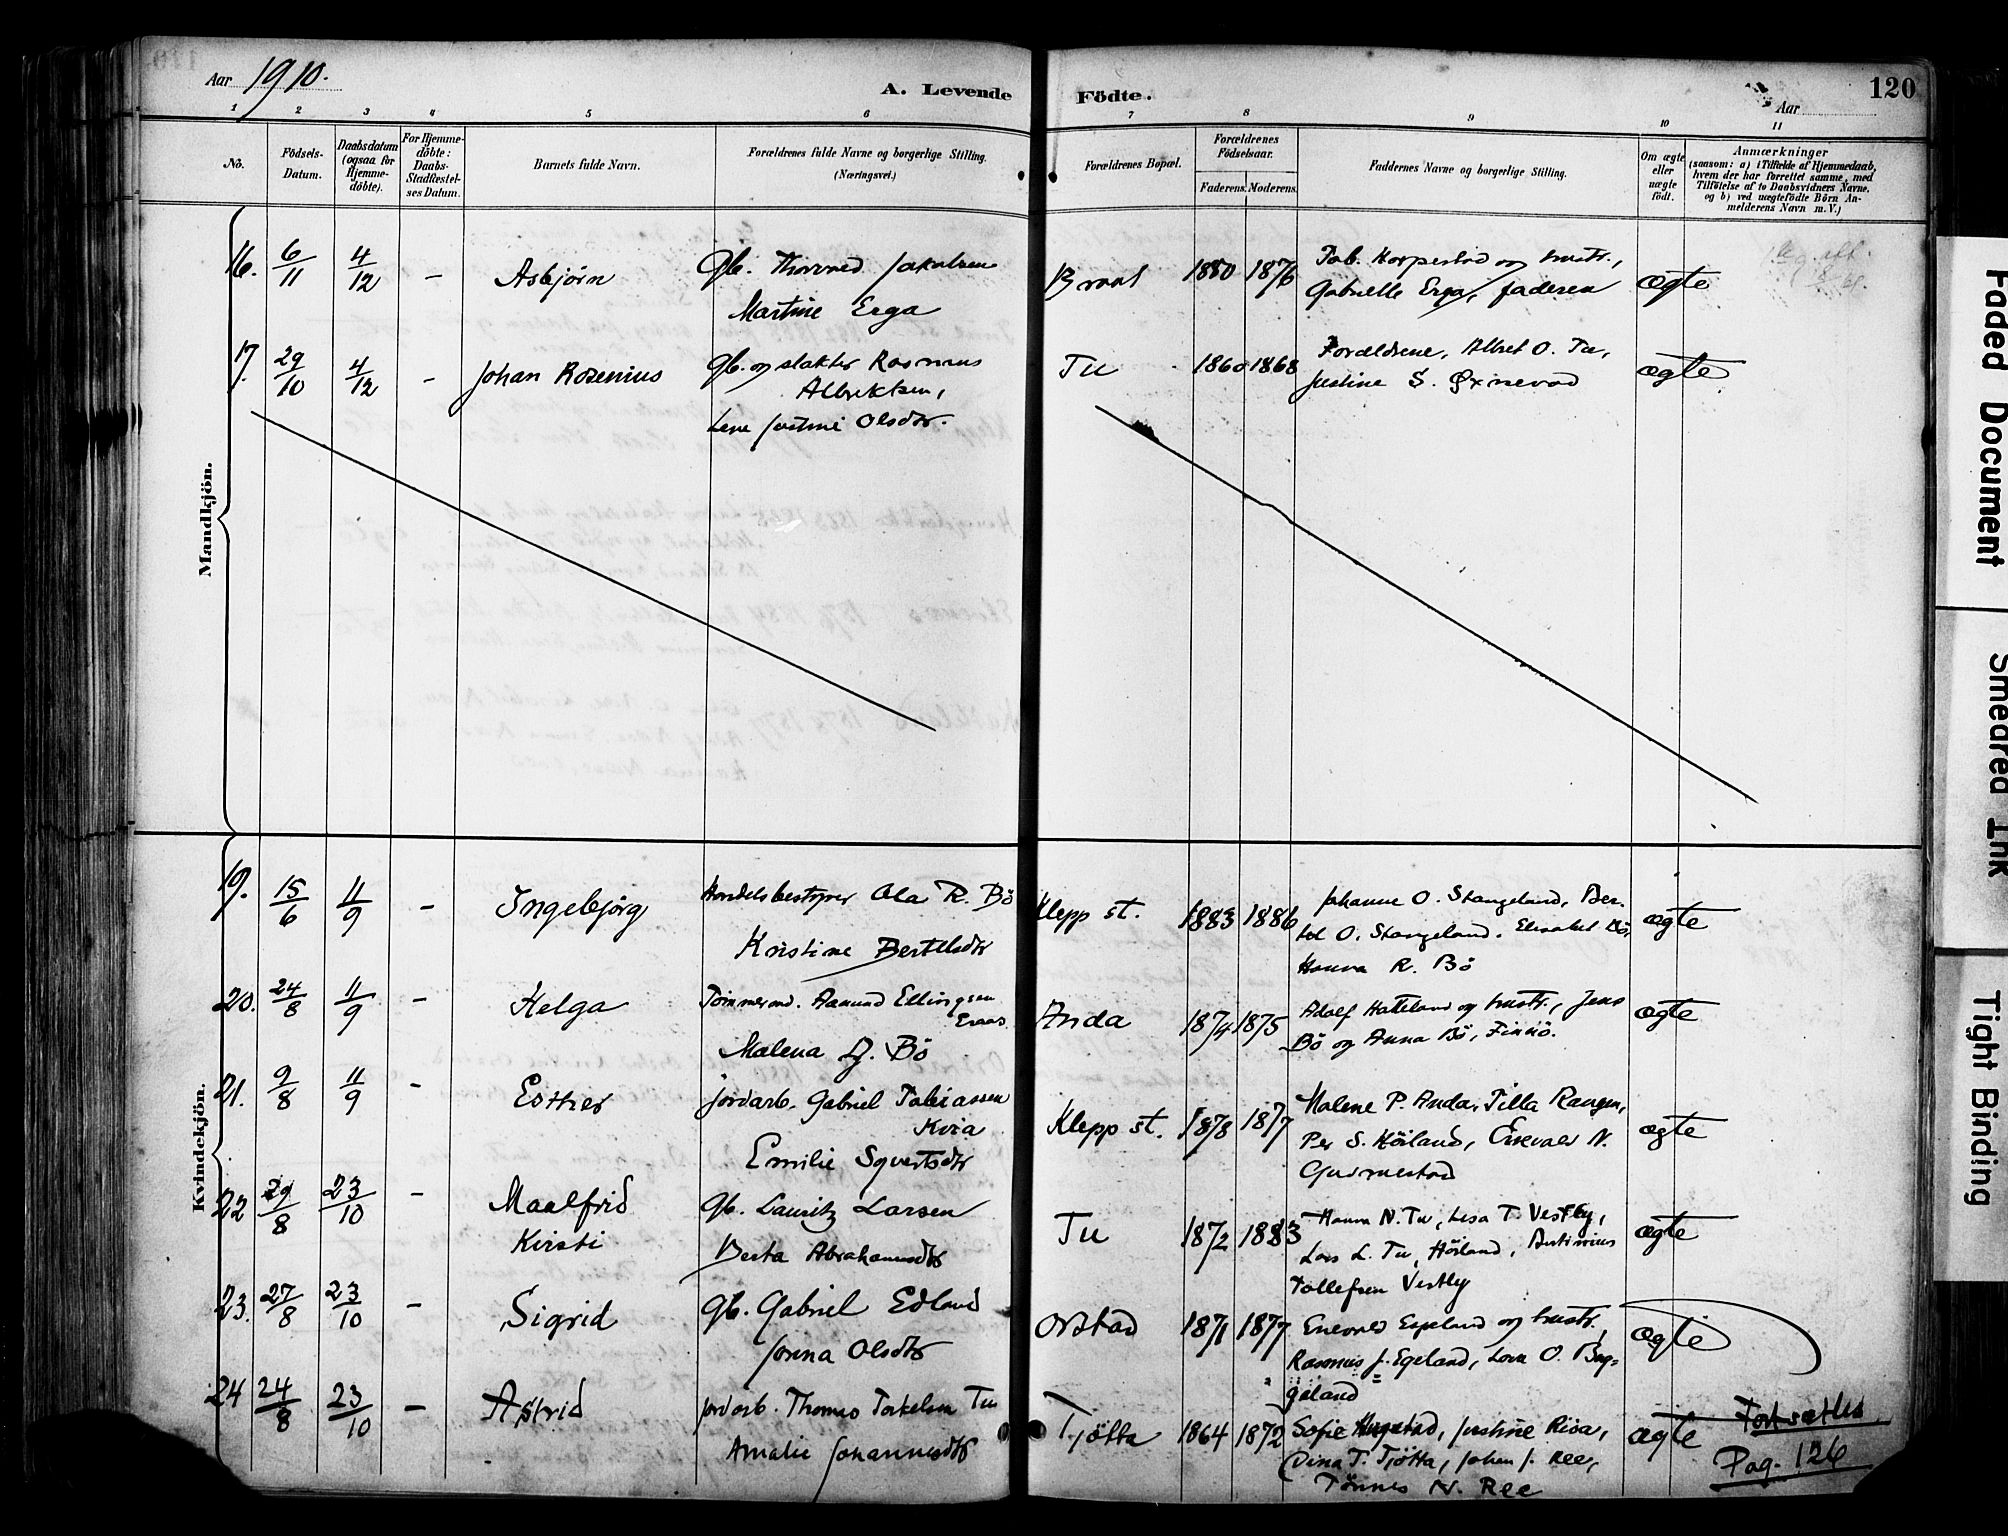 Aar 1910.
A. Levende Födte.
Aar
120
1 2 3 4 5 6 7 8 9 10 11
No.
Födsels-Datum.
Daabsdatum (ogsaa for Hjemme-döbte).
For Hjemme-döbte: Daabs-Stadfæstel-ses Datum.
Barnets fulde Navn.
Forældrenes fulde Navne og borgerlige Stilling. (Næringsvei.)
Forældrenes Bopæl.
Forældrenes Födselsaar.
Faderens. Moderens.
Faddernes Navne og borgerlige Stilling.
Om ægte eller uægte födt.
Anmærkninger
(saasom: a) i Tilfælde af Hjemmedaab,
hvem der har forrettet samme, med
Tilföielse af to Daabsvidners Navne.
og b) ved uægtefödte Börn An-
melderens Navn m. V.)
Mandkjön.
16. 6/11 4/12 – Asbjörn Gb. Thorvald Jakobsen Braut 1880 1876 Tob. Korpestad og hustr., ægte
Martine Erga Gabrielle Erga, faderen
17. 29/10 4/12 – Johan Rosenius Gb. og slakter Rasmus Tu 1860 1868 Forældrene, Albret O. Tu, ægte
Albrektsen, Justine S. Øxnevad
Lene Justine Olsdtr.
Kvindekjön.
19. 15/6 11/9 – Ingebjörg Handelsbestyrer Ola R. Bö Klepp st. 1883 1886 Johanne O. Stangeland, Ber- ægte
Kristine Bertelsdtr tel O. Stangeland. Elisabet Bö,
Hanna R. Bö
20. 24/8 11/9 – Helga Tömmermd. Aanund Ellingsen Anda 1874 1875 Adolf Hatteland og hustr., Jens ægte
Malena J. Bö Bö og Anna Bö, Finnö.
21. 9/8 11/9 – Esther jordarb. Gabriel Tobiassen Klepp st. 1878 1877 Malene P. Anda, Tilla Raugen, ægte
Kvia Per S. Höiland, Enevald N.
Emilie Syvertsdtr Gudmestad
22 29/8 23/10 – Maalfrid Gb. Lauritz Larsen Tu 1872 1883 Hanna N. Tu, Lisa T. Vestly, ægte
Kirsti Berta Abrahamsdtr Lars L. Tu, Höiland, Bertinius
Tollefsen Vestly
23. 27/8 23/10 – Sigrid Gb. Gabriel Edland Orstad 1871 1877 Enevald Espeland og hustr., ægte
Jorina Olsdtr Rasmus J. Egeland, Lova O. Byg=
geland
24 24/8 23/10 – Astrid jordarb. Thomas Torkelsen Tu Tjötta 1864 1872 Sofie Haugstad, Justine Risa, ægte
Amalie Johannesdtr Dina T. Tjötta, Johan J. Ree,
Tönnes N. Ree
Fortsættes
Pag. 126
Faded Document
Smeared Ink
Tight Binding